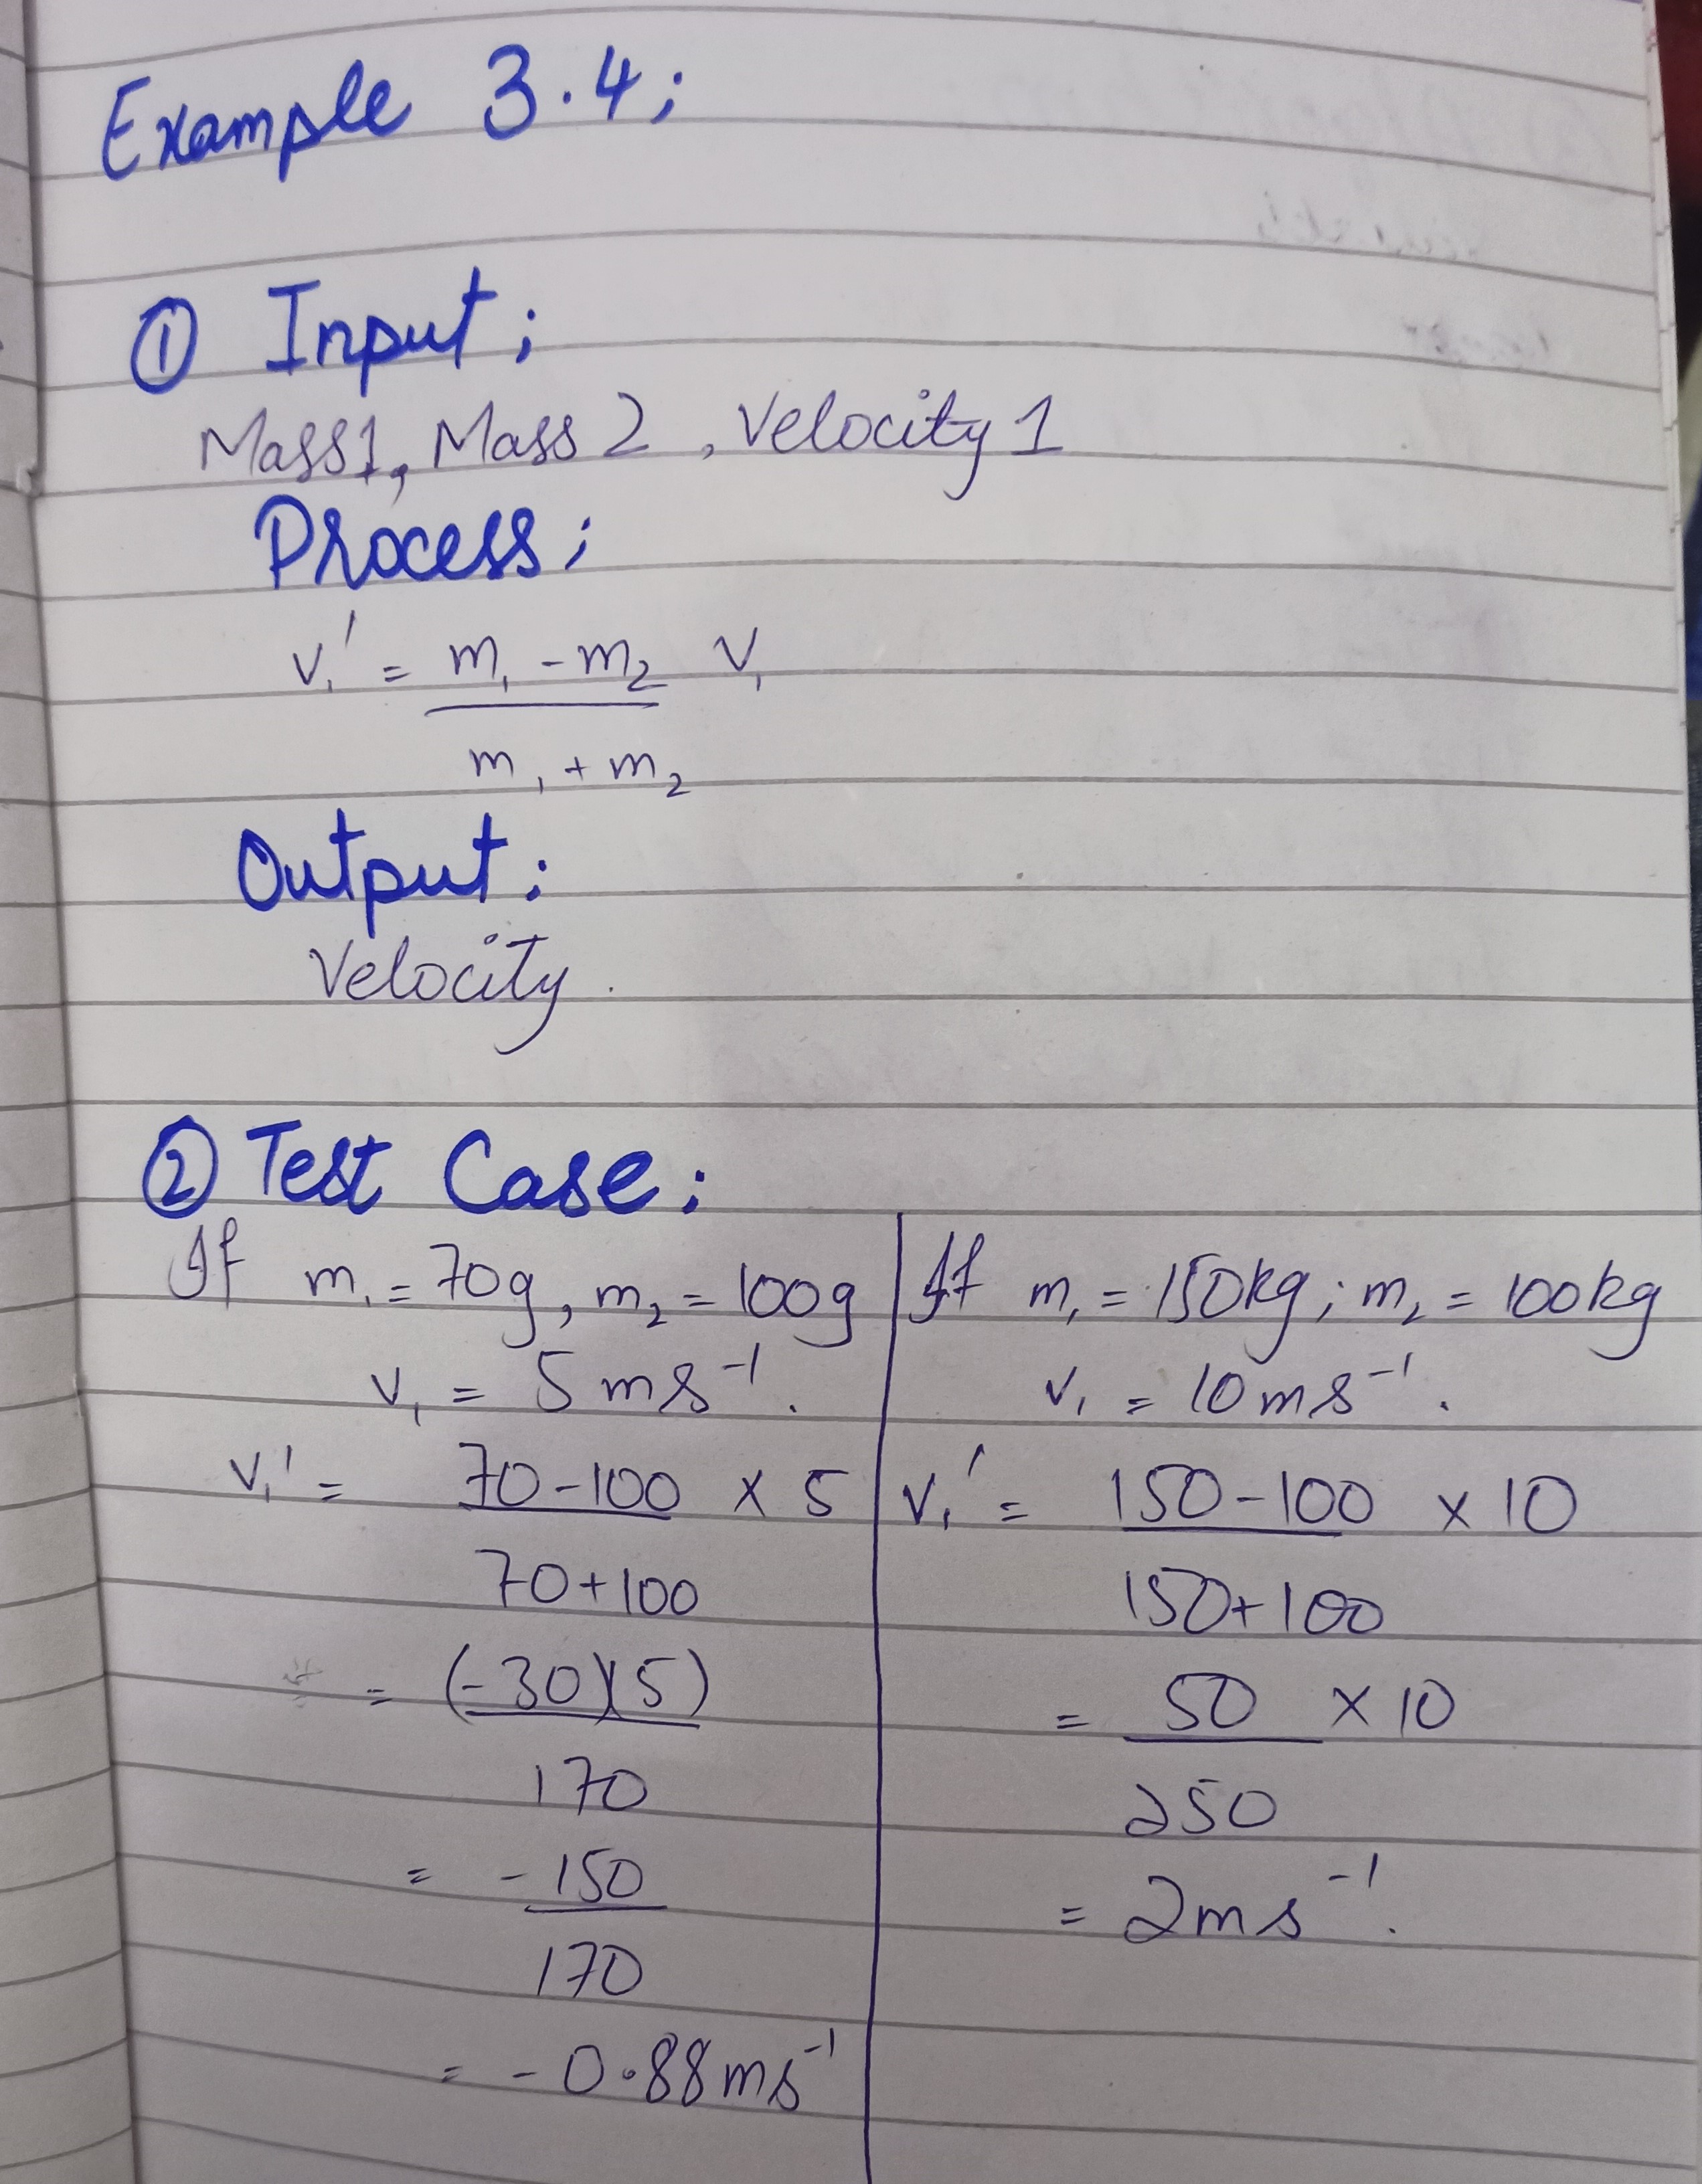 Example 3.4;
① Input;
Mass1, Mass 2, Velocity 1
Process;
v₁' = m₁ - m₂ v₁
m₁ + m₂
Output;
Velocity.
② Test Case;
If m₁ = 70g, m₂ = 100g
v₁ = 5 ms⁻¹.
v₁' = 70-100 x 5
70+100
= (-30)(5)
170
= -150
170
= -0.88 ms⁻¹
If m₁ = 150kg; m₂ = 100kg
v₁ = 10 ms⁻¹.
v₁' = 150-100 x 10
150+100
= 50 x 10
250
= 2 ms⁻¹.